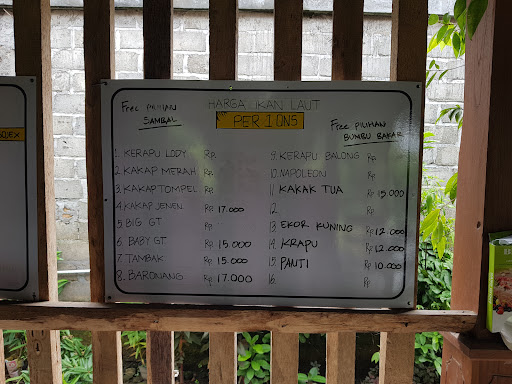 HARGA IKAN LAUT
PER 1 ONS
Free PILIHAN
SAMBAL
Free PILIHAN
BUMBU BAKAR
1. KERAPU LODY Rp.
2. KAKAP MERAH Rp.
3. KAKAP TOMPEL Rp.
4. KAKAP JENEN Rp. 17.000
5. BIG GT Rp.
6. BABY GT Rp 15.000
7. TAMBAK Rp. 15.000
8. BARONANG Rp. 17.000
9. KERAPU BALONG Rp
10. NAPOLEON Rp.
11. KAKAK TUA Rp 15.000
12. Rp.
13. EKOR KUNING Rp 12.000
14. KRAPU Rp 12.000
15. PANTI Rp 10.000
16. Rp